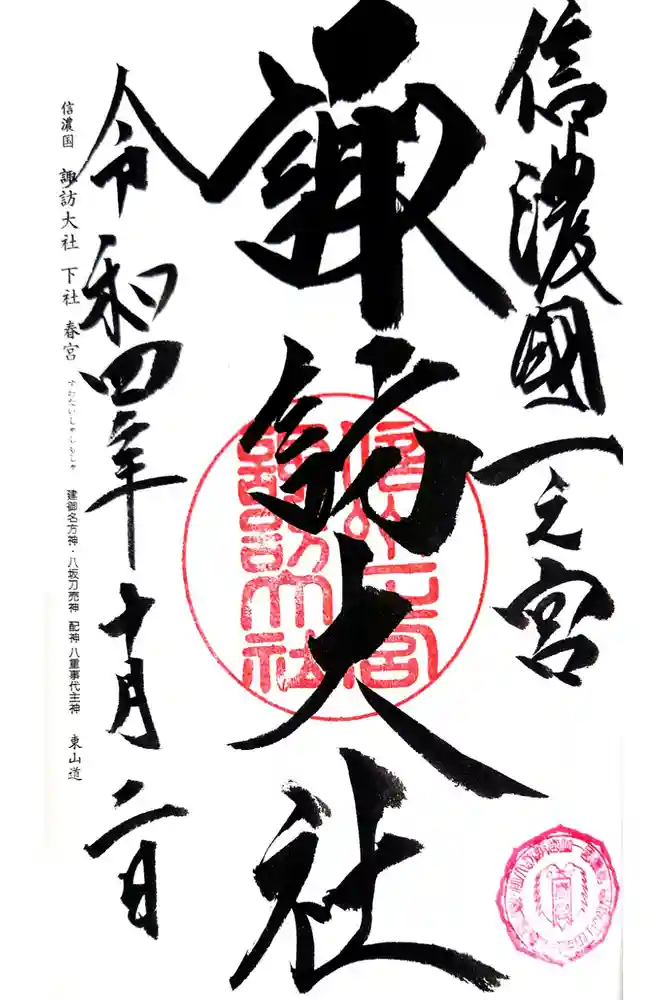 信濃國一之宮
諏訪大社
令和四年十月二日
信濃国 諏訪大社 下社 春宮 すわたいしゃしもしゃ 建御名方神・八坂刀売神 配神 八重事代主神 東山道
諏訪大社